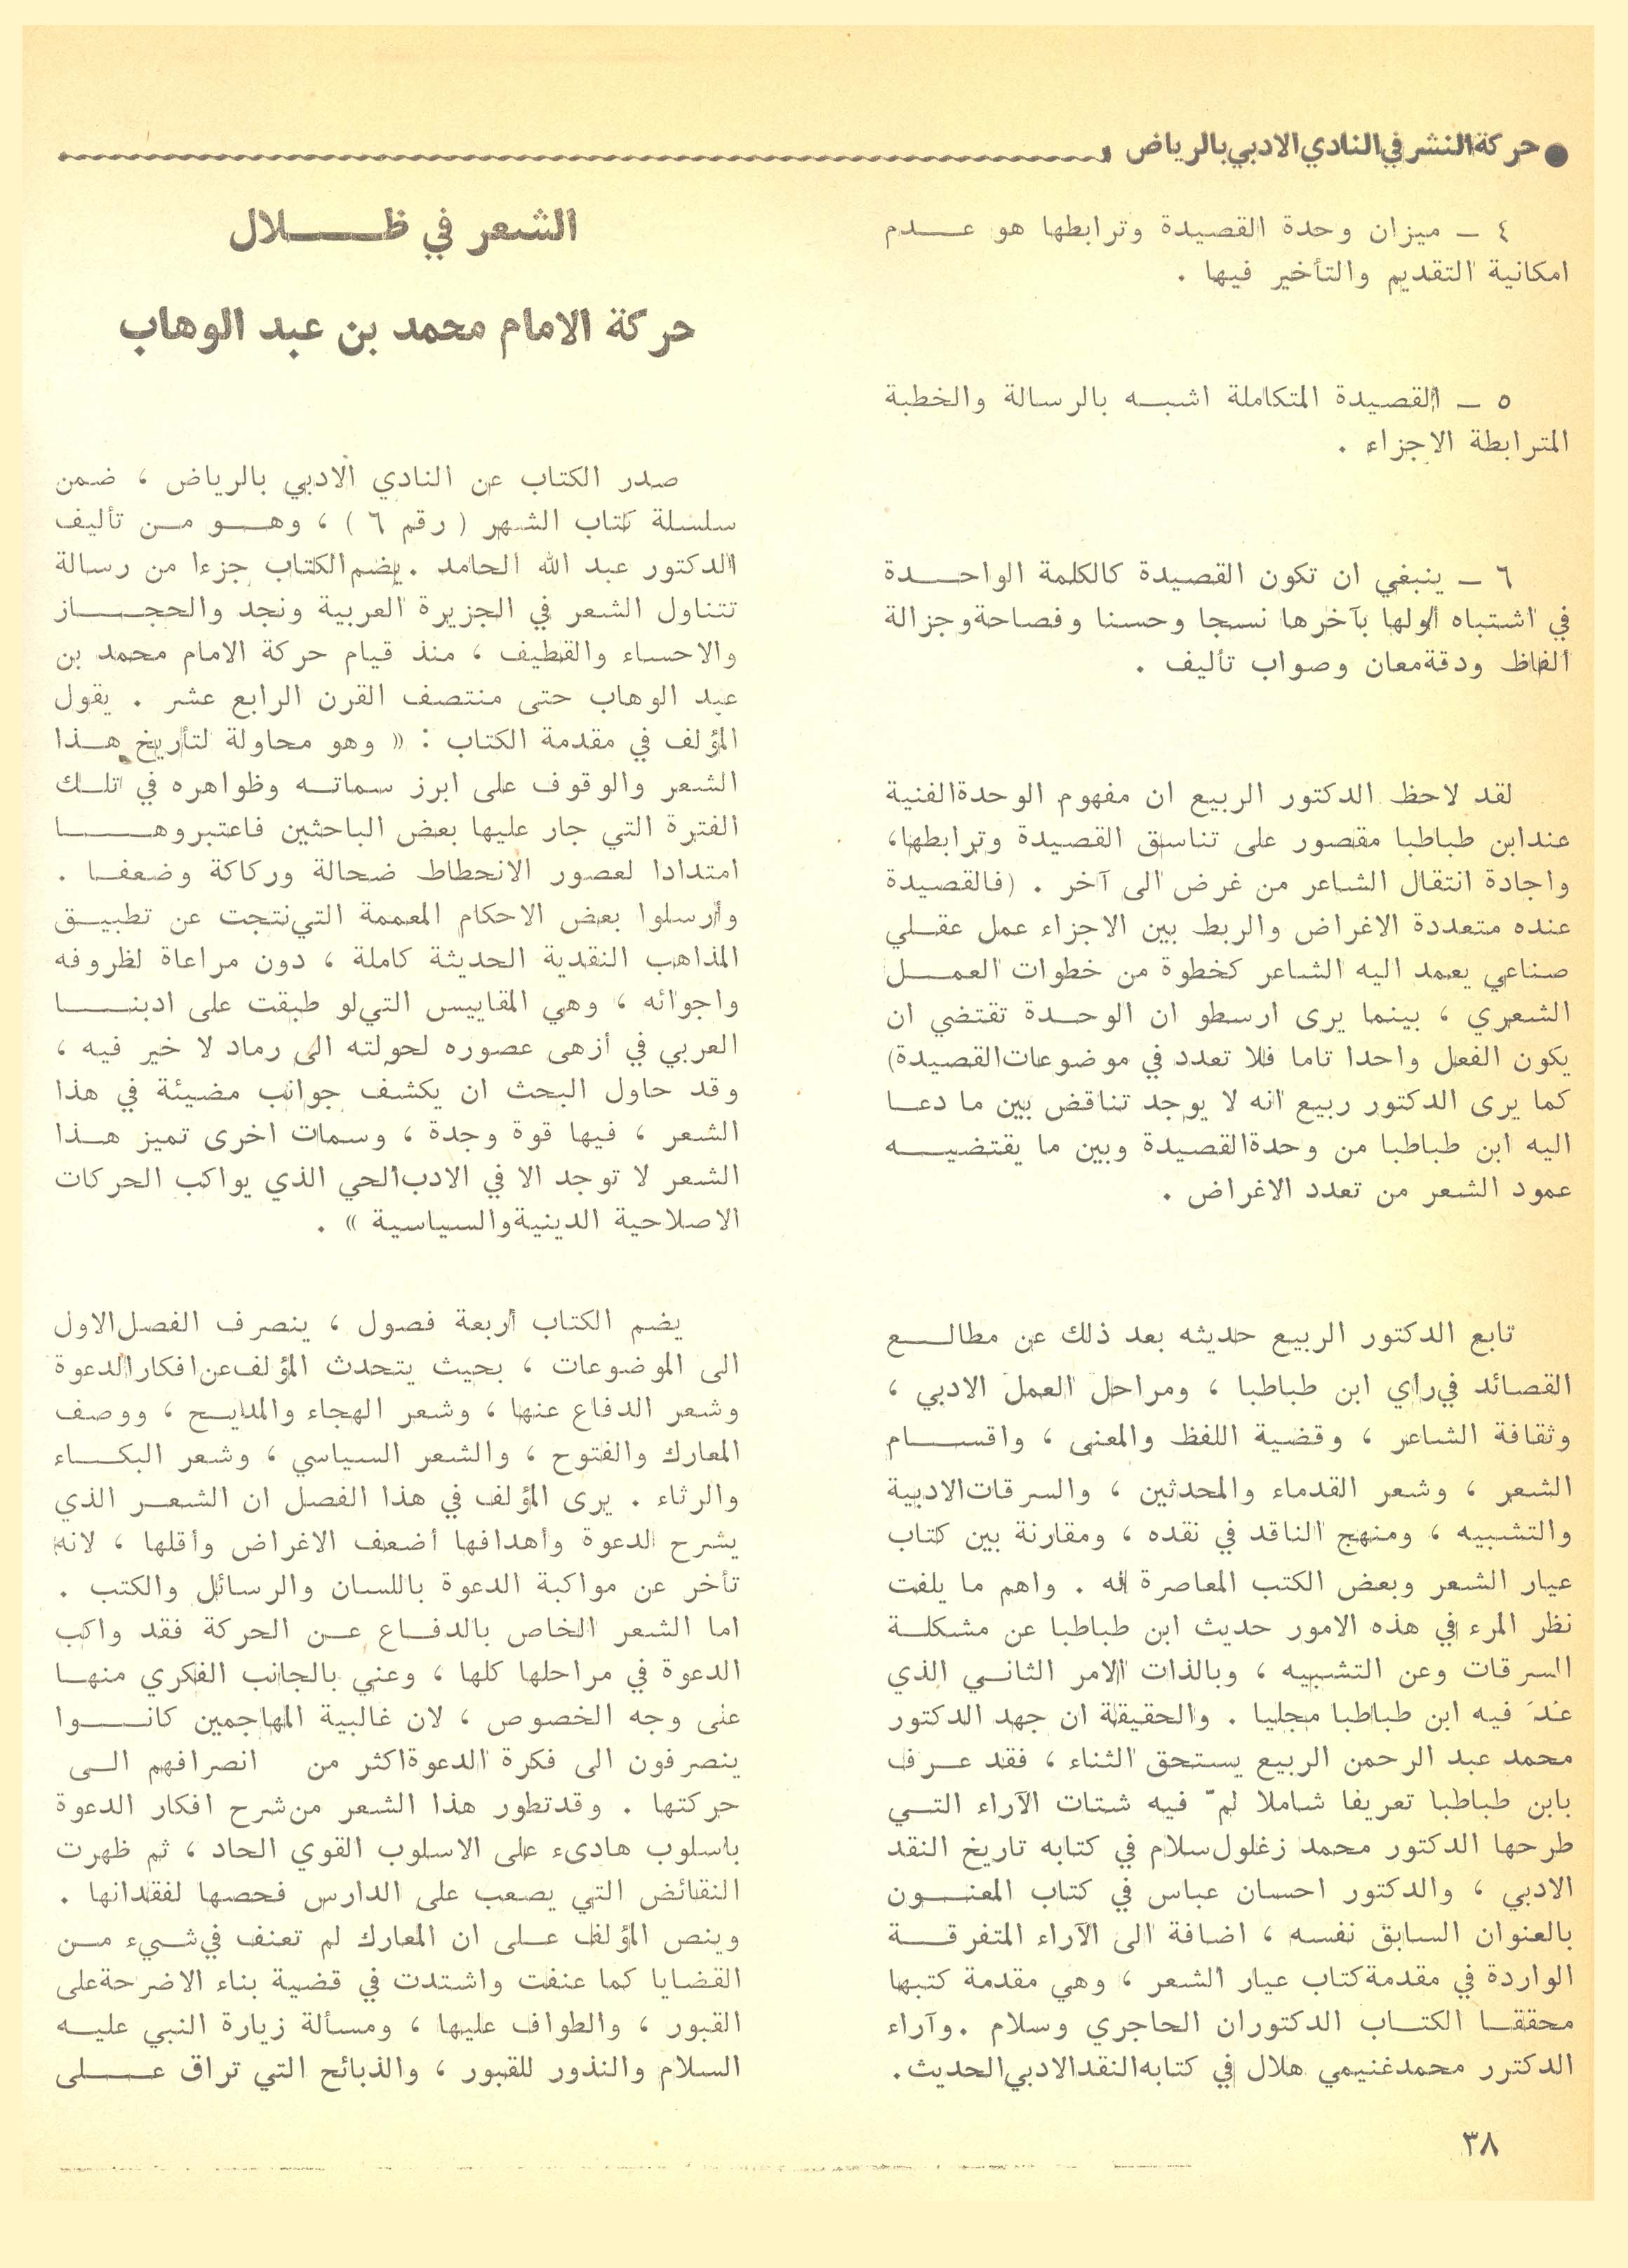 ● حركة النشر في النادي الادبي بالرياض
٤ ـ ميزان وحدة القصيدة وترابطها هو عـــدم
امكانية التقديم والتأخير فيها .
٥ ـ القصيدة المتكاملة اشبـه بالرسالة والخطبة
المترابطة الاجزاء .
٦ ـ ينبغي ان تكون القصيدة كالكلمة الواحـــدة
في اشتباه اولها بآخرها نسجا وحسنا وفصاحة وجزالة
ألفاظ ودقة معان وصواب تأليف .
لقد لاحظ الدكتور الربيع ان مفهوم الوحدة الفنية
عند ابن طباطبا مقصور على تناسق القصيدة وترابطها ،
واجادة انتقال الشاعر من غرض الى آخر . (فالقصيدة
عنده متعددة الاغراض والربط بين الاجزاء عمل عقـلي
صناعي يعمد اليه الشاعر كخطوة من خطوات العمـــل
الشعري ، بينما يرى ارسطو ان الوحـدة تقتضي ان
يكون الفعل واحدا تاما فلا تعدد في موضوعات القصيدة)
كما يرى الدكتور ربيع انه لا يوجد تناقض بين ما دعـا
اليه ابن طباطبا من وحدة القصيدة وبين ما يقتضيـــه
عمود الشعر من تعدد الاغراض .
تابع الدكتور الربيع حديثه بعد ذلك عن مطالـــع
القصائد في راي ابن طباطبا ، ومراحل العمل الادبي ،
وثقافة الشاعر ، وقضية اللفظ والمعنى ، واقســـام
الشعر ، وشعر القدماء والمحدثين ، والسرقات الادبية
والتشبيه ، ومنهج الناقد في نقده ، ومقارنة بين كتاب
عيار الشعر وبعض الكتب المعاصرة له . واهم ما يلفت
نظر المرء في هذه الامور حديث ابن طباطبا عن مشكلـة
السرقات وعن التشبيه ، وبالذات الامر الثانـي الذي
عد فيه ابن طباطبا مجليا . والحقيقة ان جهد الدكتور
محمد عبد الرحمن الربيع يستحق الثناء ، فقد عـرف
بابن طباطبا تعريفا شاملا لمّ فيه شتات الآراء التـي
طرحها الدكتور محمد زغلول سلام في كتابه تاريخ النقد
الادبي ، والدكتور احسان عباس في كتاب المعنـــون
بالعنوان السابق نفسه ، اضافة الى الآراء المتفرقـــة
الواردة في مقدمة كتاب عيار الشعر ، وهي مقدمة كتبها
محققـا الكتــاب الدكتوران الحاجري وسلام . وآراء
الدكترر محمد غنيمي هلال في كتابه النقد الادبي الحديث .
الشعر في ظـــــلال
حركة الامام محمد بن عبد الوهاب
صدر الكتاب عن النادي الادبي بالرياض ، ضمن
سلسلة كتاب الشهر ( رقم ٦ ) ، وهـــو مــن تأليف
الدكتور عبد الله الحامد . يضم الكتاب جزءا من رسالة
تتناول الشعر في الجزيرة العربية ونجد والحجـــاز
والاحساء والقطيف ، منذ قيام حركة الامام محمد بن
عبد الوهاب حتى منتصف القرن الرابع عشر . يقول
المؤلف في مقدمة الكتاب : « وهو محاولة لتأريخ هـذا
الشعر والوقوف على ابرز سماتـه وظواهره في تلــك
الفترة التي جار عليها بعض الباحثين فاعتبروهـــــا
امتدادا لعصور الانحطاط ضحالة وركاكة وضعفـا .
وأرسلوا بعض الاحكام المعممة التي نتجت عن تطبيـق
المذاهب النقدية الحديثة كاملة ، دون مراعاة لظروفه
واجوائه ، وهي المقاييس التي لو طبقت على ادبنـــا
العربي في أزهى عصوره لحولته الى رماد لا خير فيه ،
وقد حاول البحث ان يكشف جوانب مضيئة في هذا
الشعر ، فيها قوة وجدة ، وسمات اخرى تميز هــذا
الشعر لا توجد الا في الادب الحي الذي يواكب الحركات
الاصلاحية الدينية والسياسية » .
يضم الكتاب أربعة فصول ، ينصرف الفصل الاول
الى الموضوعات ، بحيث يتحدث المؤلف عن افكار الدعوة
وشعر الدفاع عنها ، وشعر الهجاء والمدايـح ، ووصف
المعارك والفتوح ، والشعر السياسي ، وشعر البكــاء
والرثاء . يرى المؤلف في هذا الفصل ان الشعـر الذي
يشرح الدعوة وأهدافها أضعف الاغراض وأقلها ، لانه
تأخر عن مواكبة الدعوة باللسان والرسائل والكتب .
اما الشعر الخاص بالدفـاع عــن الحركة فقد واكب
الدعوة في مراحلها كلها ، وعني بالجانب الفكري منهـا
على وجه الخصوص ، لان غالبية المهاجمين كانـــوا
ينصرفون الى فكرة الدعوة اكثر من انصرافهم الــى
حركتها . وقد تطور هذا الشعر من شرح افكار الدعوة
باسلوب هادىء على الاسلوب القوي الحاد ، ثم ظهرت
النقائض التي يصعب على الدارس فحصها لفقدانها .
وينص المؤلف علــى ان المعارك لم تعنف في شيء مــن
القضايا كما عنفت واشتدت في قضية بناء الاضرحة على
القبور ، والطواف عليها ، ومسألة زيارة النبي عليــه
السلام والنذور للقبور ، والذبائح التي تراق عــــلى
٣٨